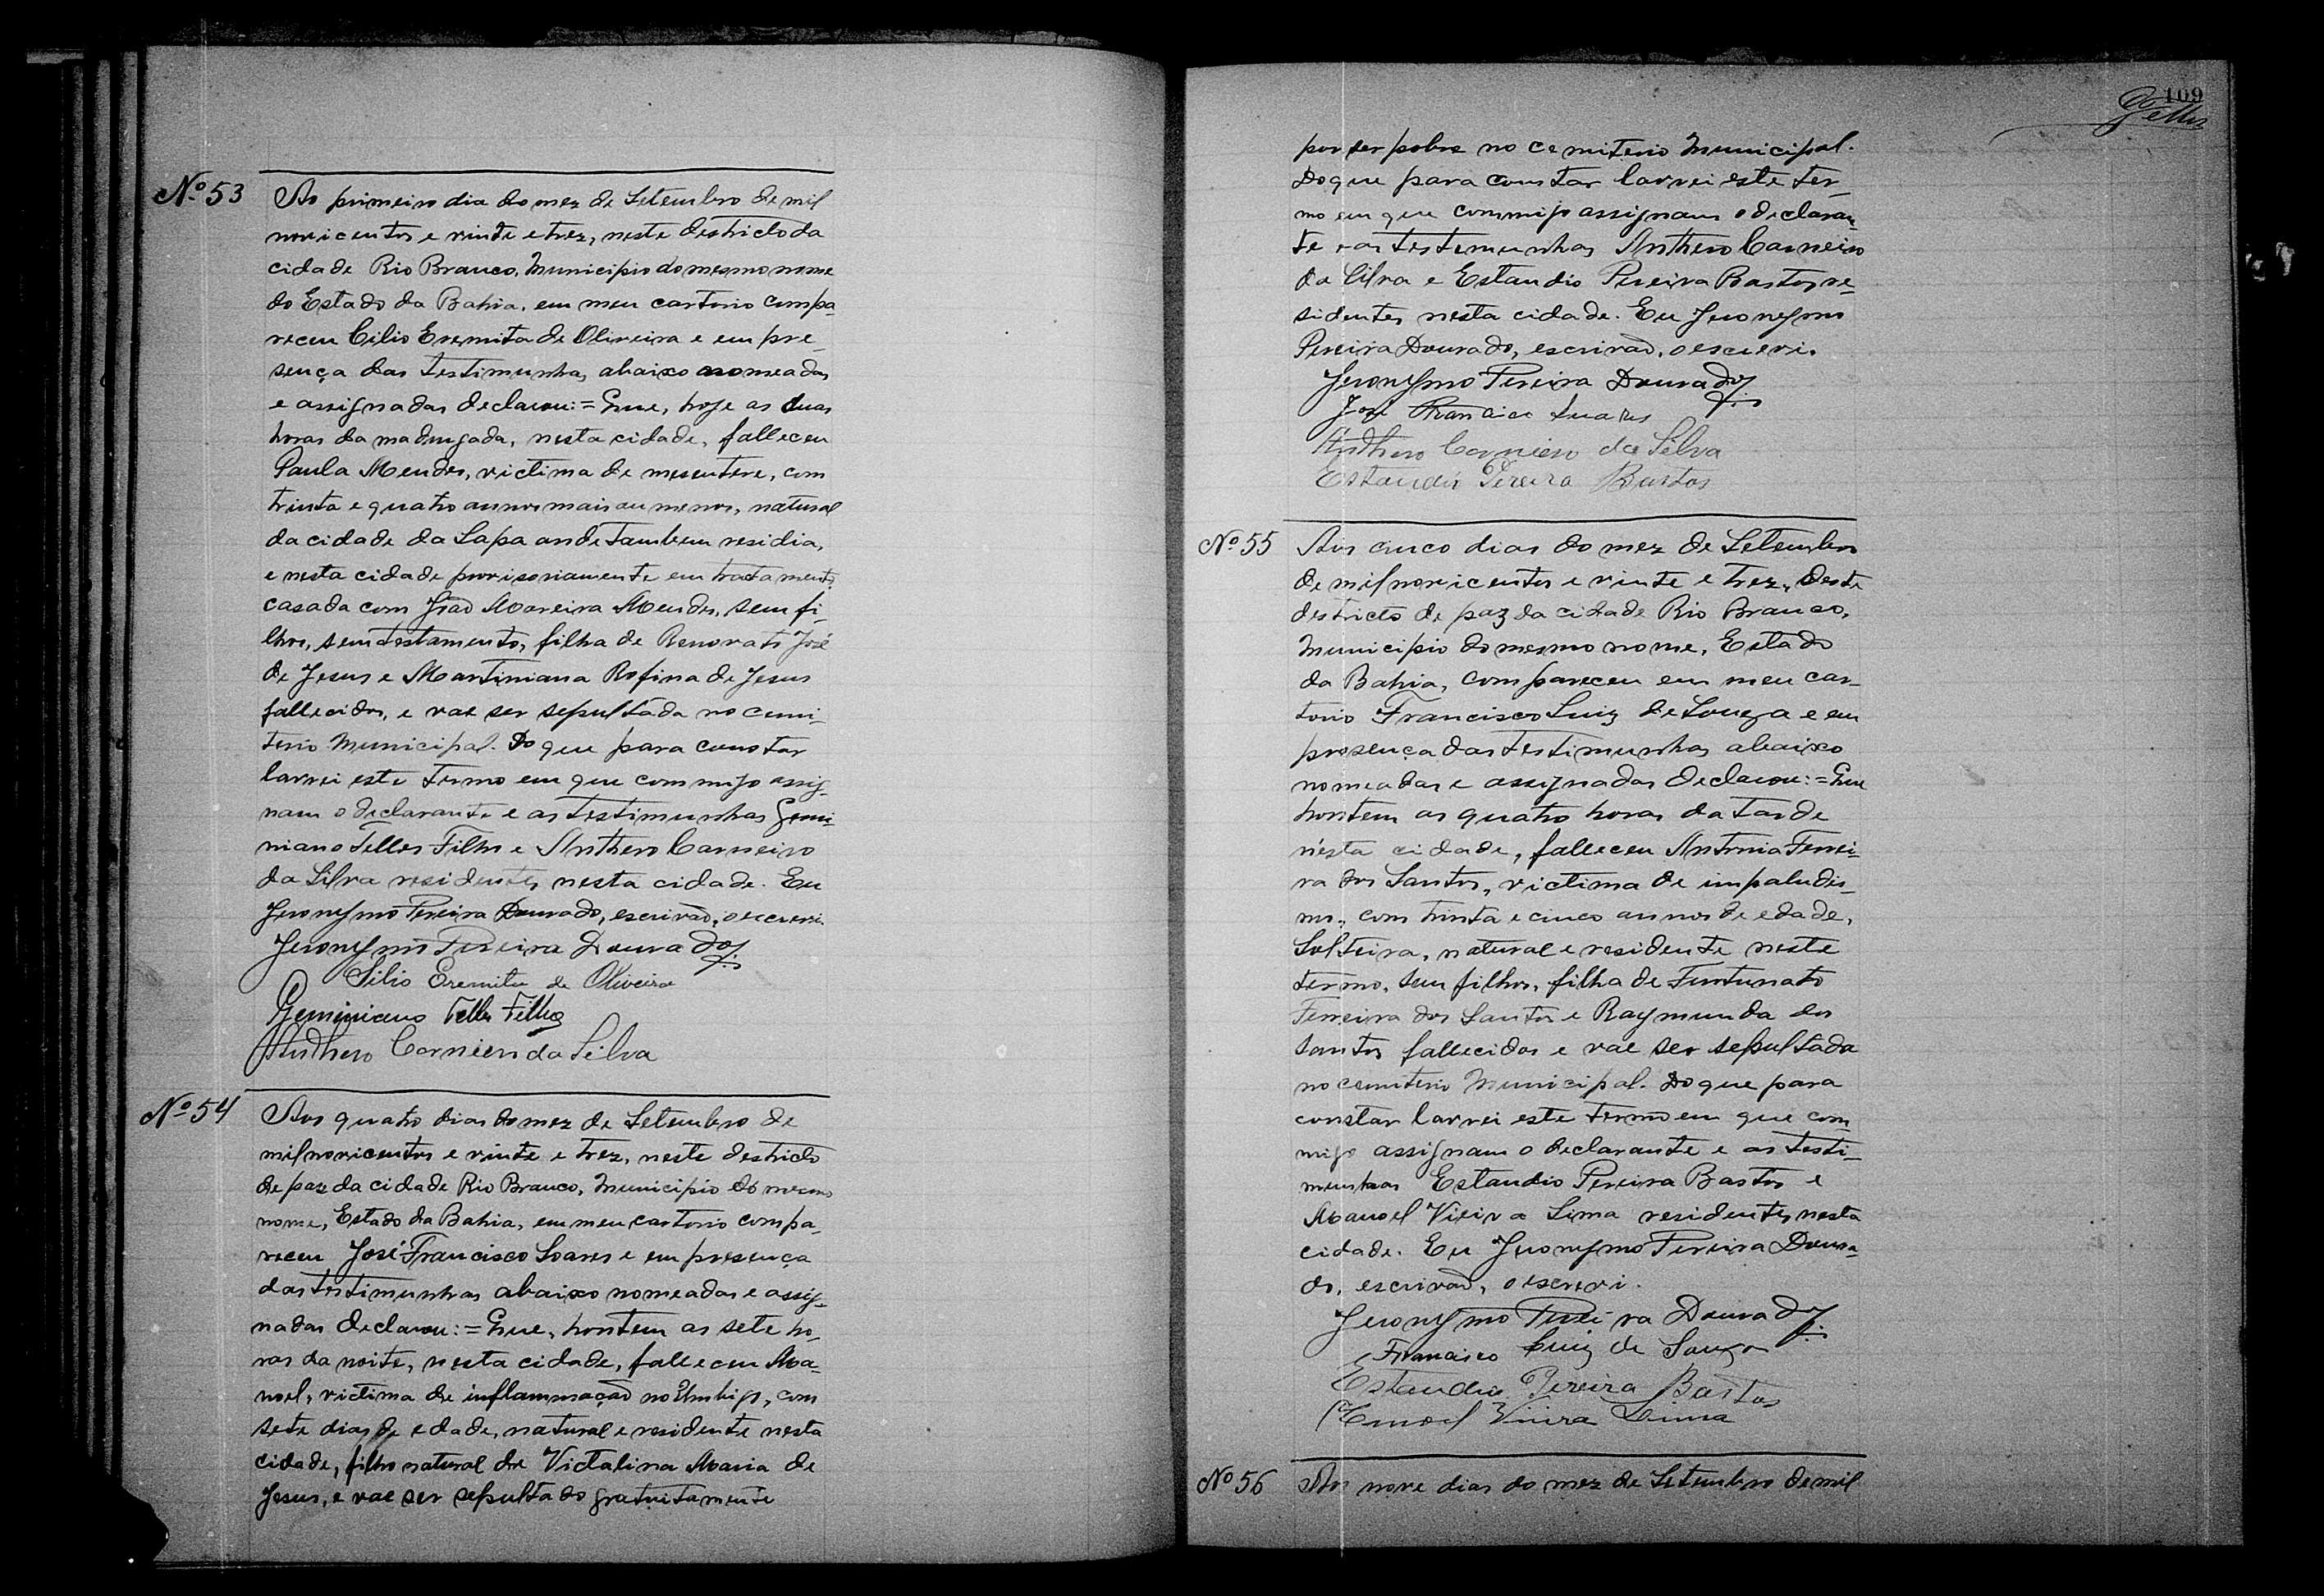 Nº 53
Ao primeiro dia do mez de Setembro de mil
novicentos e vinte e trez, neste destricto da
cidade Rio Branco, Municipio do mesmo nome
do Estado da Bahia, em meu cartorio compa-
receu Cilio Eremita de Oliveira e em pre-
sença das testimunhas abaixo nomeadas
e assignadas declarou:= Que, hoje as duas
horas da madrugada, nesta cidade, falleceu
Paula Mendes, victima de mesentere, com
trinta e quatro annos mais ou menos, natural
da cidade da Lapa onde tambem residia,
e nesta cidade provisoriamente em tratamento
casada com João Moreira Mendes, sem fi-
lhos, sem testamento, filha de Renovato José
de Jesus e Martiniana Rofina de Jesus
fallecidos, e vae ser sepultada no cemi-
terio Municipal. Do que para constar
lavrei este termo em que commigo assig-
nam o declarante e as testimunhas Gemi-
niano Telles Filho e Anthero Carneiro
da Silva residentes nesta cidade. Eu
Jeronymo Pereira Dourado, escrivão, o escrevi.
Jeronymo Pereira Dourado
Silio Eremita de Oliveira
Geminiano Telles Filho
Anthero Carneiro da Silva
Nº 54
Aos quatro dias do mez de Setembro de
mil novicentos e vinte e trez, neste destricto
de paz da cidade Rio Branco, Municipio do mesmo
nome, Estado da Bahia, em meu cartorio compa-
receu José Francisco Soares e em presença
das testimunhas abaixo nomeadas e assig-
nadas declarou:= Que, hontem as sete ho-
ras da noite, nesta cidade, falleceu Ma-
noel, victima de inflammação no Umbigo, com
sete dias de edade, natural e residente nesta
cidade, filho natural de Victalina Maria de
Jesus, e vae ser sepultado gratuitamente
109
Telles
por ser pobre no cemiterio Municipal.
Do que para constar lavrei este ter-
mo em que commigo assignam o declaran-
te e as testemunhas Anthero Carneiro
da Silva e Estandio Pereira Bastos re-
sidentes nesta cidade. Eu Jeronymo
Pereira Dourado, escrivão, o escrevi.
Jeronymo Pereira Dourado
José Francisco Suares
Anthero Carneiro da Silva
Estandio Pereira Bastos
Nº 55
Aos cinco dias do mez de Setembro
de mil novicentos e vinte e trez, deste
destricto de paz da cidade Rio Branco,
Municipio do mesmo nome, Estado
da Bahia, compareceu em meu car-
torio Francisco Luiz de Souza e em
presença das testimunhas abaixo
nomeadas e assignadas declarou:= Que
hontem as quatro horas da tarde
nesta cidade, falleceu Antonia Ferrei-
ra dos Santos, victima de impaludis-
mo, com trinta e cinco annos de edade,
Solteira, natural e residente neste
termo, sem filhos, filha de Funtunato
Ferreira dos Santos e Raymunda dos
Santos fallecidos e vae ser sepultada
no cemiterio Municipal. Do que para
constar lavrei este termo em que com-
migo assignam o declarante e as testi-
munhas Estandio Pereira Bastos e
Manoel Vieira Lima residentes nesta
cidade. Eu Jeronymo Pereira Doura-
do, escrivão, o escrevi.
Jeronymo Pereira Dourado
Francisco Luiz de Souza
Estandio Pereira Bastos
Emoel Vieira Lima
Nº 56
Aos nove dias do mez de Setembro de mil